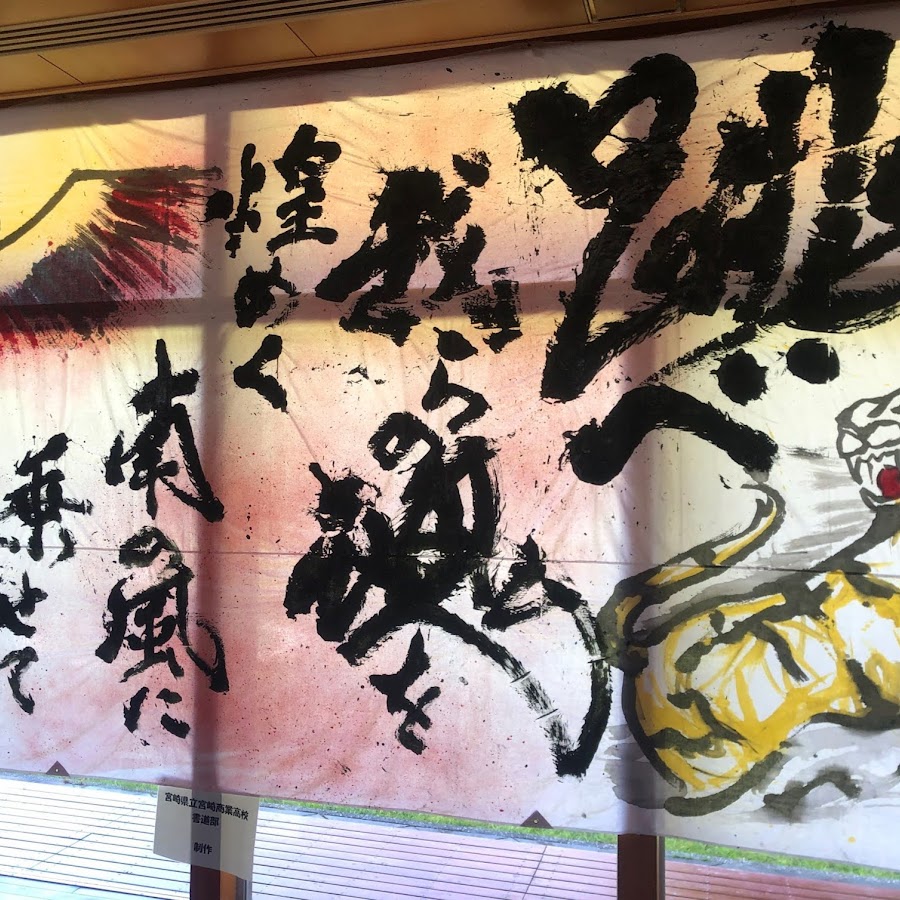 らの魂を
煌めく
南の風に
乗せて
宮崎県立宮崎商業高校
書道部
制作